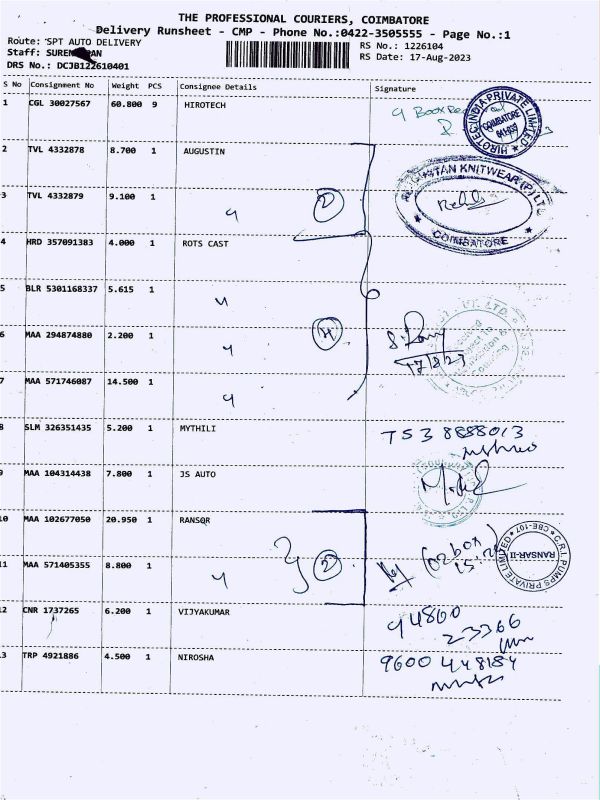 THE PROFESSIONAL COURIERS, COIMBATORE
Delivery Runsheet - CMP - Phone No.:0422-3505555 - Page No.:1
Route: SPT AUTO DELIVERY
RS No.: 1226104
Staff:
RS Date: 17-Aug-2023
DRS No.: DCJB122610401
S No Consignment No Weight PCS Consignee Details Signature
1 CGL 30027567 60.800 9 HIROTECH
9 Box
HIROTEC INDIA PRIVATE LIMITED
COIMBATORE
2 TVL 4332878 8.700 1 AUGUSTIN
KNITWEAR (P) LTD
COIMBATORE
3 TVL 4332879 9.100 1 " 2
4 HRD 357091383 4.000 1 ROTS CAST
5 BLR 5301168337 5.615 1 "
6 MAA 294874880 2.200 1 " 4
17/8/23
7 MAA 571746087 14.500 1 "
8 SLM 326351435 5.200 1 MYTHILI
9 MAA 104314438 7.800 1 JS AUTO
10 MAA 102677050 20.950 1 RANSQR
C.R.I. PUMPS PRIVATE LIMITED
RANSAR-II
CBE-107
11 MAA 571405355 8.800 1 " 2
02 box
12 CNR 1737265 6.200 1 VIJYAKUMAR
94860
23366
13 TRP 4921886 4.500 1 NIROSHA
9600 448184